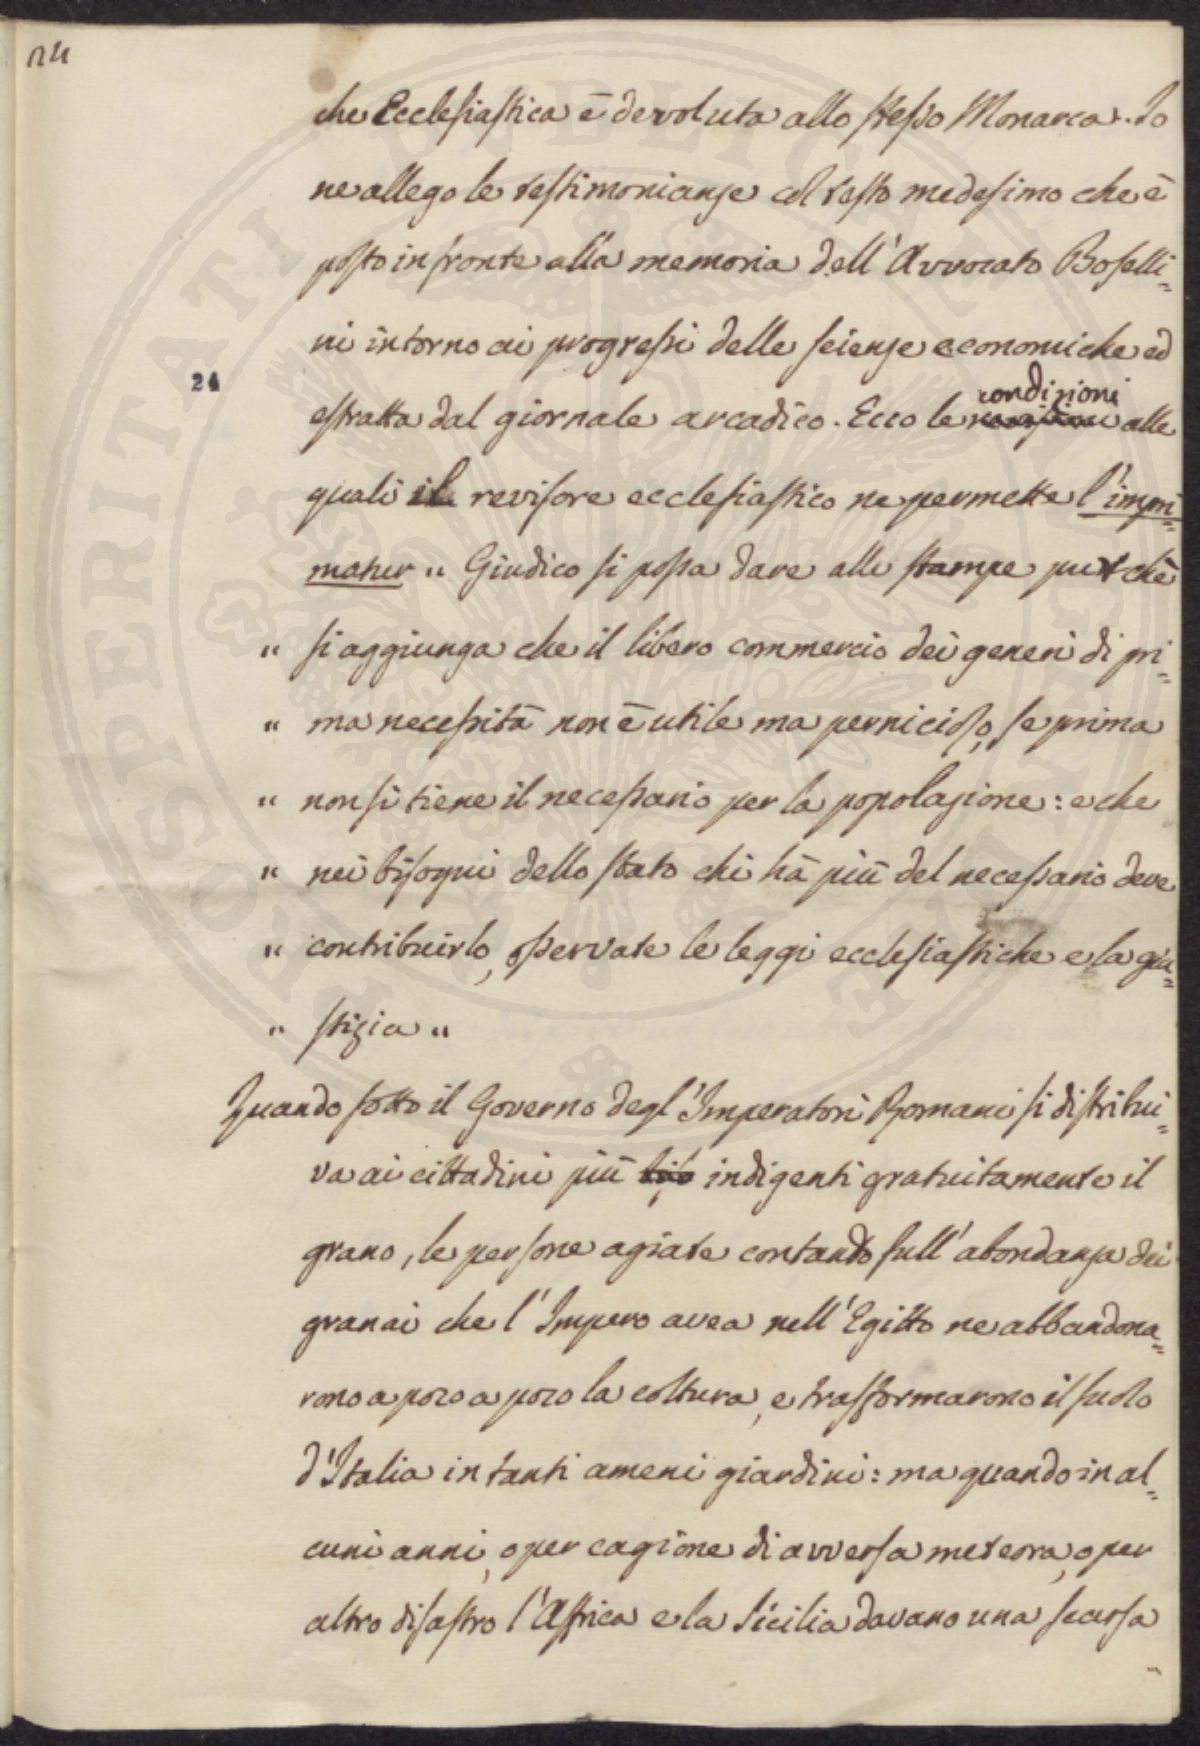 24
che Ecclesiastica è devoluta allo stesso Monarca. Io
ne allego le testimonianze col testo medesimo che è
posto in fronte alla memoria dell'Avvocato Boselli=
ni intorno ai progressi delle scienze economiche ed
24
condizioni
estratta dal giornale arcadico. Ecco le alle
quali il revisore ecclesiastico ne permette l'impri=
matur " Giudico si possa dare alle stampe purchè
" si aggiunga che il libero commercio dei generi di pri=
" ma necessità non è utile ma pernicioso, se prima
" non si tiene il necessario per la popolazione: e che
" nei bisogni dello stato chi hà più del necessario deve
" contribuirlo, osservate le leggi ecclesiastiche e la giu=
" stizia "
Quando sotto il Governo degl'Imperatori Romani si distribui=
va ai cittadini più indigenti gratuitamente il
grano, le persone agiate contando sull'abondanza dei
granai che l'Impero avea nell'Egitto ne abbandona=
rono a poco a poco la coltura, e trasformarono il suolo
d'Italia in tanti ameni giardini: ma quando in al=
cuni anni, o per cagione di avversa meteora, o per
altro disastro l'Affrica e la Sicilia davano una scarsa
PROSPERITATI PUBLICAE AUGENDAE